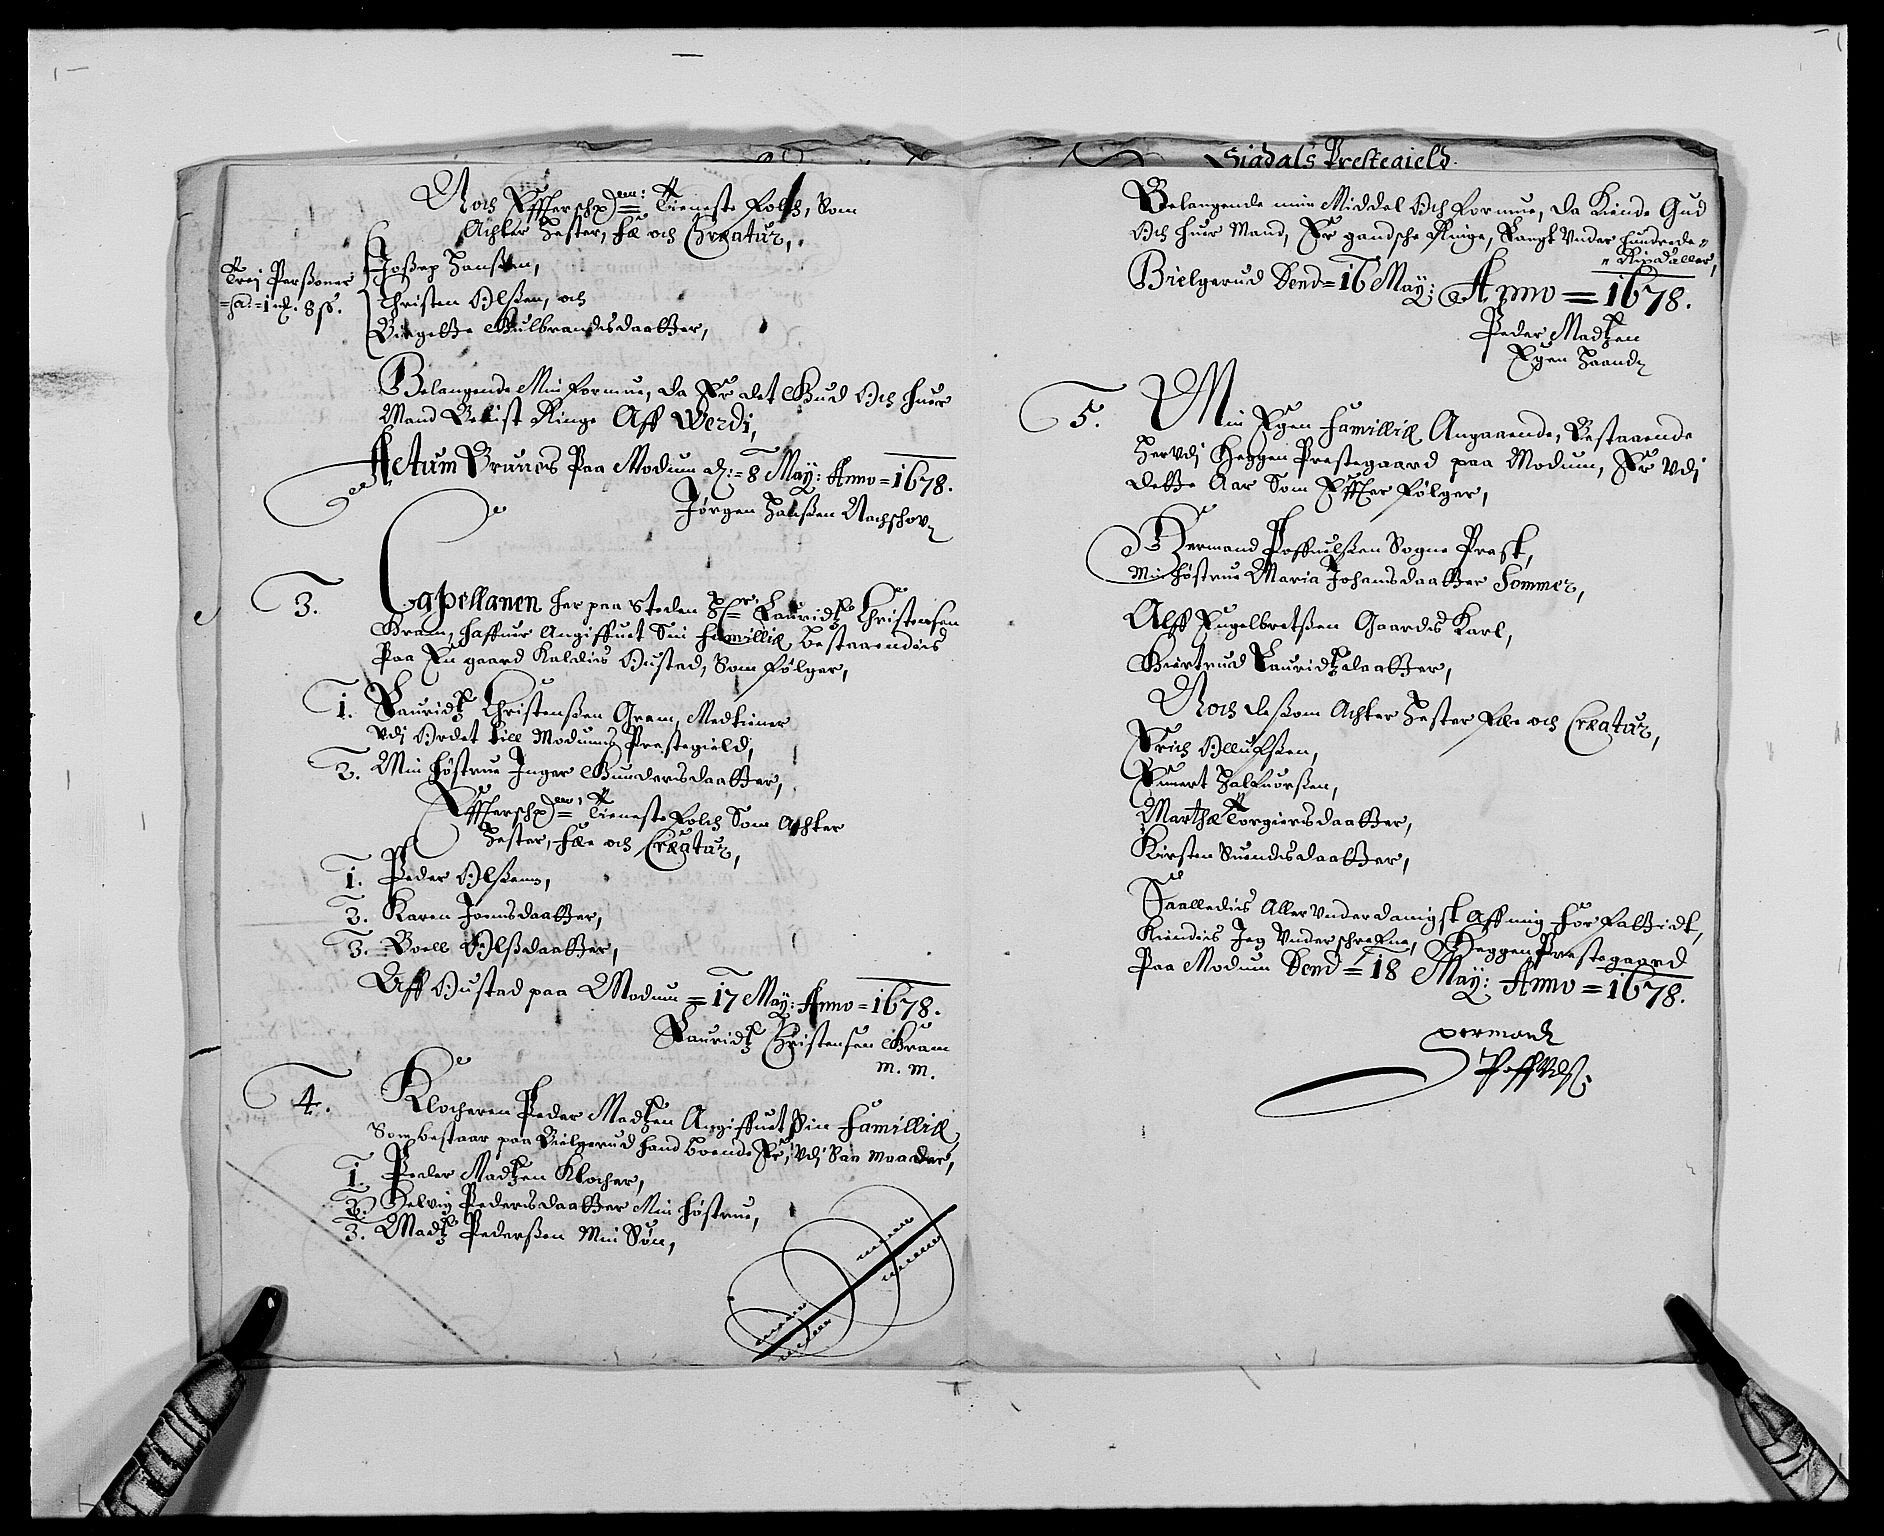 Noch Effterschne: Tieneste Folch, Som
Achter Hester, Fæ och Creatur,
Trej Perßoner
=fa:=1 mk. 8 ß.
Joßep Hanßen,
Christen Olßen, och
Birgette Gulbrandsdaatter,
Belangende Min Formue, da Er det Gud Och huer
Mand Bevist Ringe Aff Werdi,
Actum Brunes Paa Modum d: = 8 May: Anno = 1678.
Jørgen Hanßen Nachschov
3. Capellanen her paa Steden Hr Lauridtz Christensen
Gram, haffuer Angiffuet Sin Famillie bestaaendes
Paa En gaard Kaldis Bustad, Som Følger,
1. Lauridtz Christenßen Gram, Medtiener
Vdj Ordet till Modums Prestegield,
2. Min Høstrue Inger Gundersdaatter,
Effterschne: Tieneste Folch Som Achter
Hester, Fæe och Creatur,
1. Peder Olßenn,
2. Karen Joensdaatter,
3. Boell Olßdaatter,
Aff Bustad paa Modum = 17 May: Anno = 1678.
Lauridtz Christensen Gram
m. m.
4. Klocheren Peder Madtzen Angiffuet Sin Famillie
Som bestaar paa Bielgerud hand boende Er, Vdj Saa Maader,
1. Peder Madtzen Klocher,
2. Helvig Pedersdaatter Min Høstrue,
3. Madtz Pederßen Min Søn,
Sigdals Prestegield.
Belangende min Middel Och Formue, da Kiende Gud
Och huer Mand, Er gandsche Ringe, Langt Under hundrede
Rixdaller,
Bielgerud Dend = 16 May: Anno = 1678.
Peder Madtzen
Egen Haand
5. Min Egen Famillie Angaaende, Bestaaende
Hervdj Heggen Prestegaard paa Modum, Er Vdj
dette Aar Som Effter Følger,
Hermand Poffuelßen Sogne Prest,
Min Høstrue Maria Johansdaatter Sommer,
Alff Engelbretßen Gaards Karl,
Giertrud Lauridtzdaatter,
Noch deßom Achter Hester Fæe och Creatur,
Erich Olluffßen,
Euuert Haluorßen,
Marthe Torgiersdaatter,
Kirsten Suendsdaatter,
Saalledis Aller Underdanigst Aff mig For Fattidt,
Kiendis Jeg Underschreffne, Heggen Prestegaard
Paa Modum Dend = 18 May: Anno = 1678.
Hermand
Poffuelß: